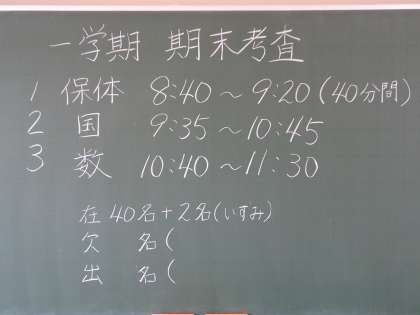 一学期 期末考査
1 保体 8:40〜9:20(40分間)
2 国 9:35〜10:45
3 数 10:40〜11:30
在 40名+2名(いすみ)
欠 名(
出 名(